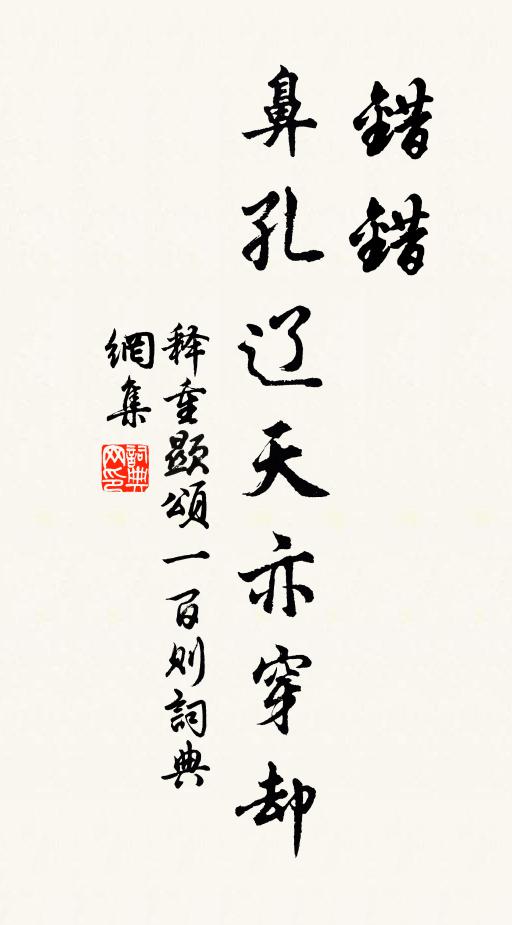 錯錯
鼻孔辽天亦穿却
释重顯頌一百則詞典
網集
詞典网印